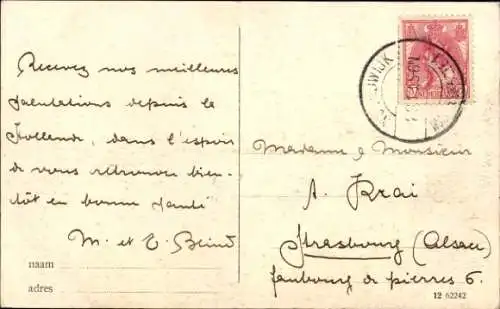 Recevez nos meilleures
salutations depuis la
Hollende, dans l'espoir
de vous retrouver bien-
tôt en bonne santé
M. et
naam
adres
Madame & Monsieur
A. Krai
Strasbourg (Alsace)
faubourg de pierres 6.
12 62242